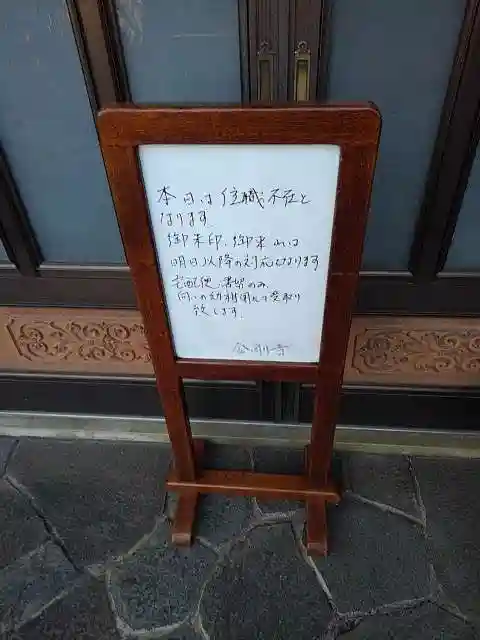 本日は住職不在と
なります
御朱印、御来山は
明日以降の対応となります
宅配便、書留のみ
向いの幼稚園にて受取り
致します。
金剛寺